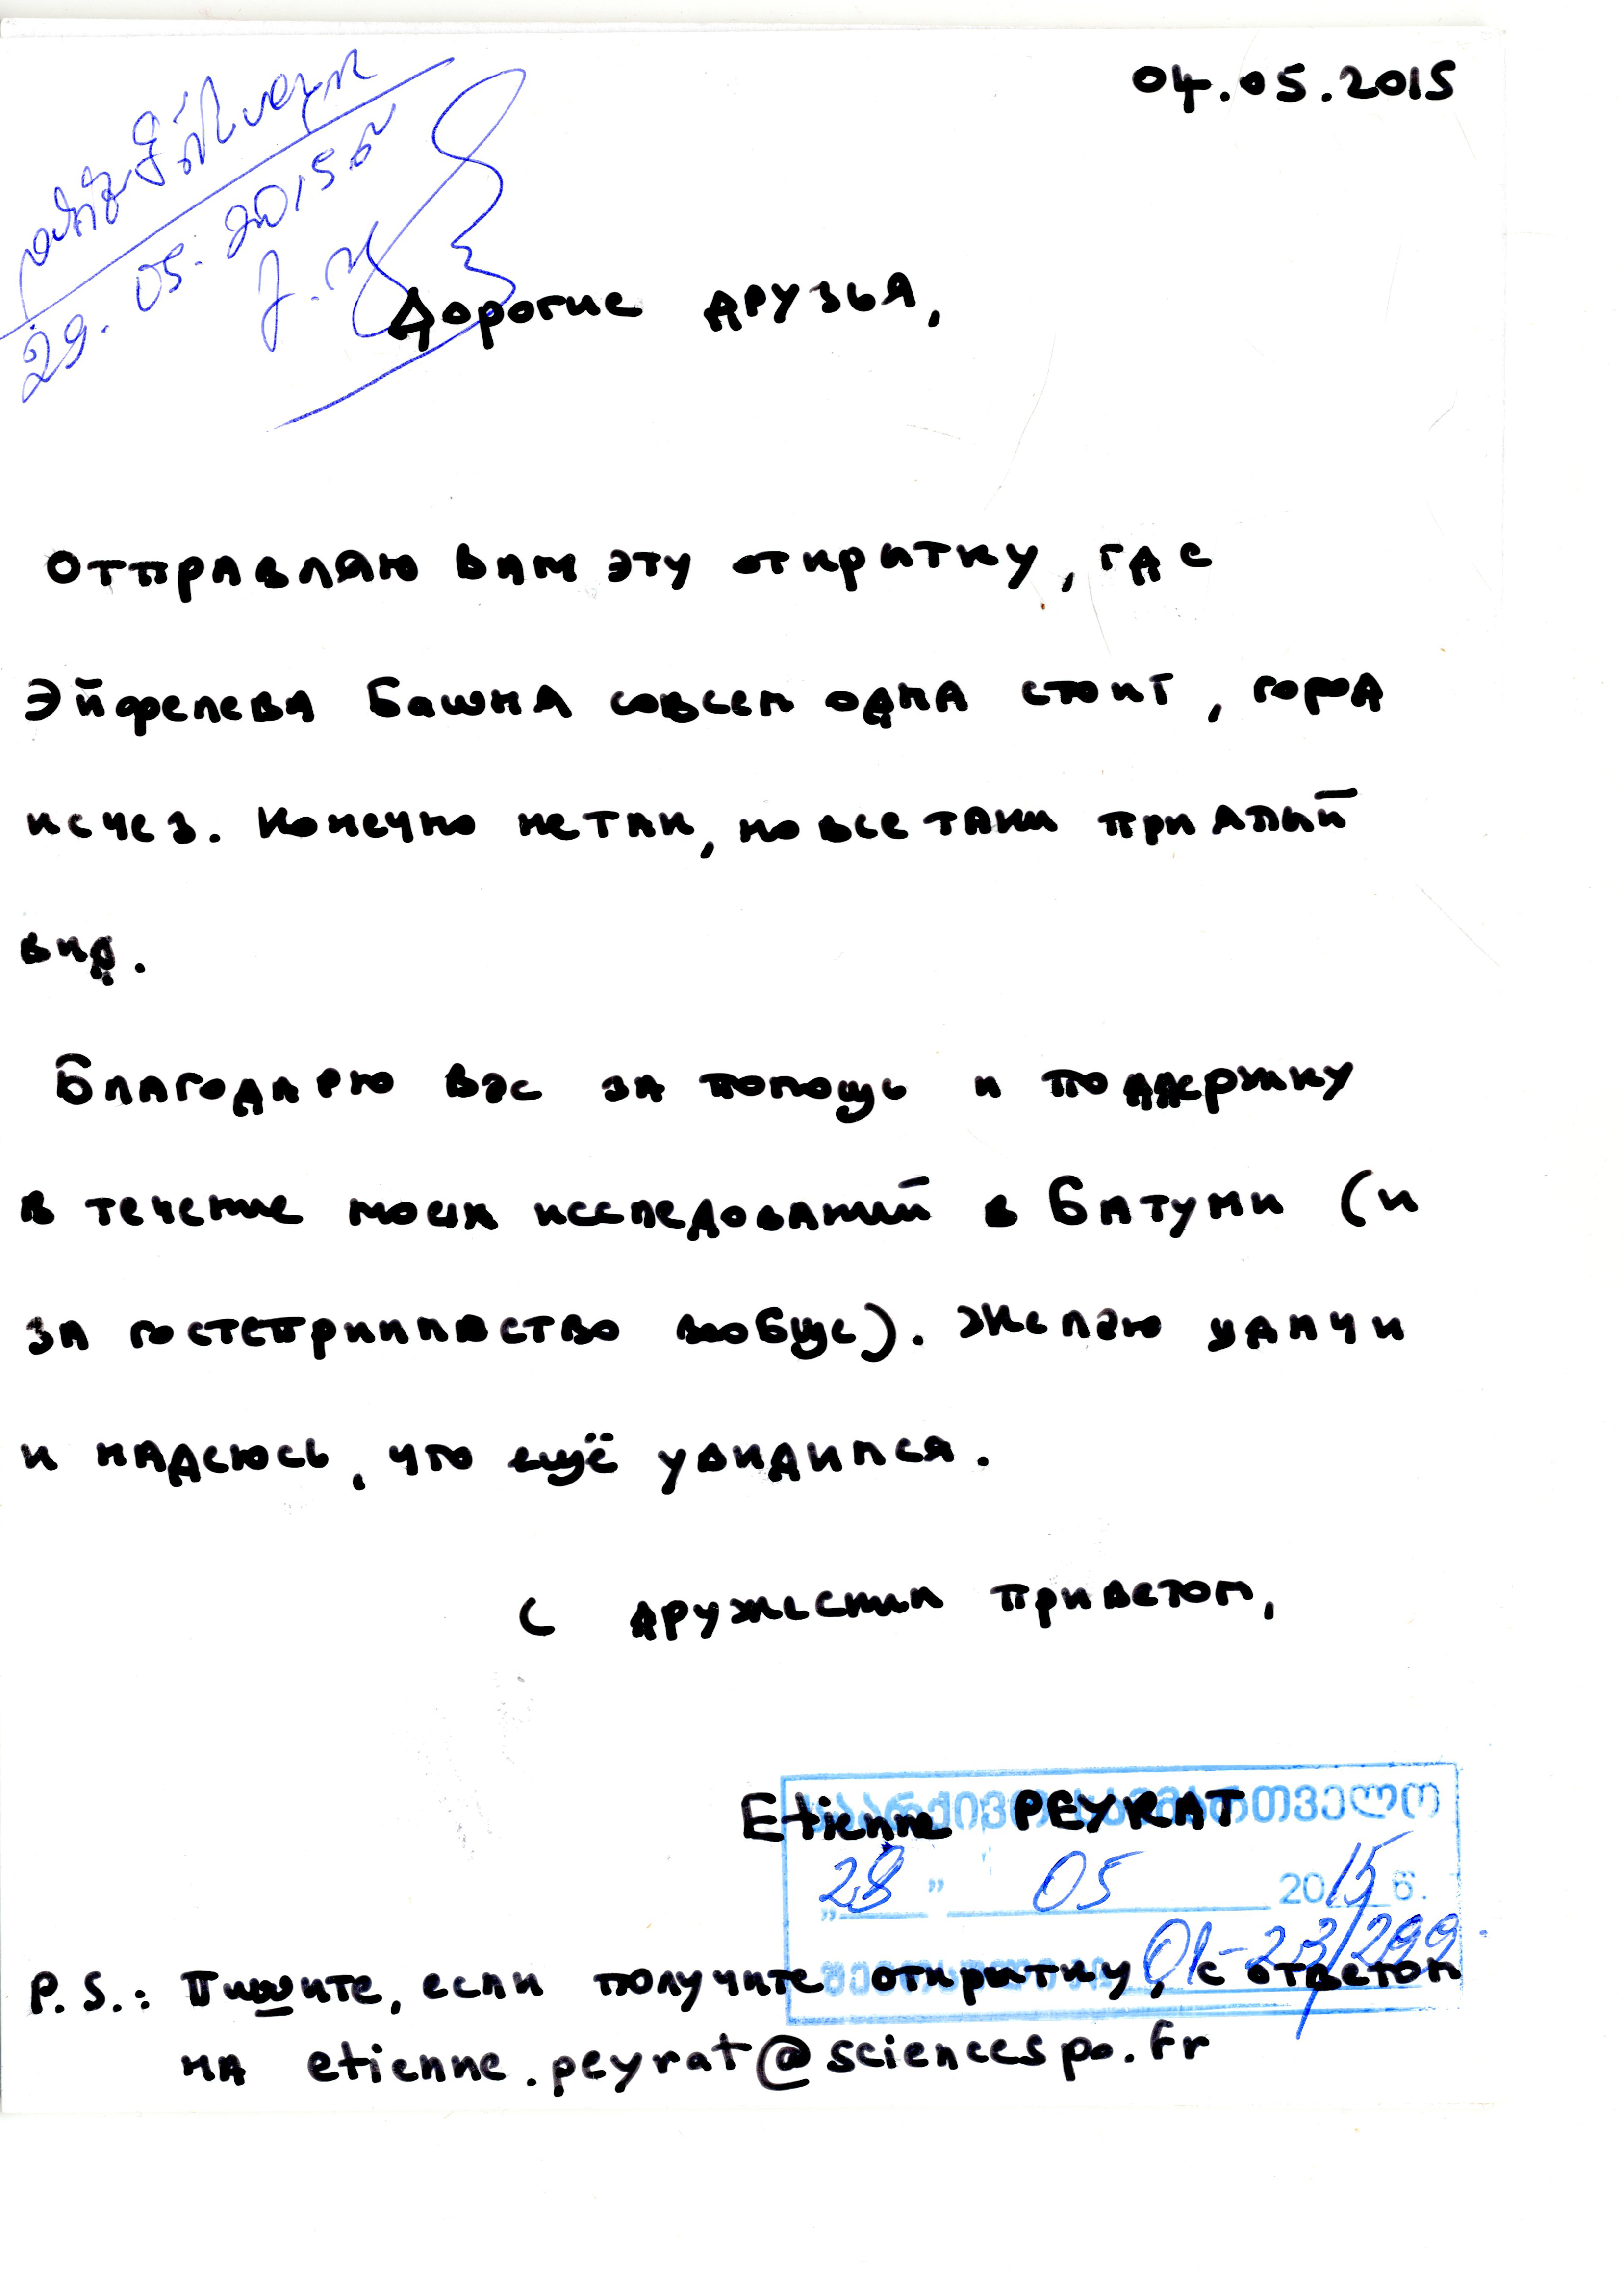 04.05.2015
29.05.2015 წ
Дорогие друзья,
Отправляю вам эту открытку, где
Эйфелева Башня совсем одна стоит, город
исчез. Конечно не так, но все таки приятый
вид.
Благодарю вас за помощь и поддержку
в течение моих исследований в Батуми (и
за гостеприимство вообще). Желаю удачи
и надеюсь, что ещё увидимся.
С дружеским приветом,
Etienne PEYRAT
საარქივო სამმართველო
„28” 05 2015 წ.
01-23/299
P.S.: Пишите, если получите открытку, с ответом
на etienne.peyrat@sciencespo.fr